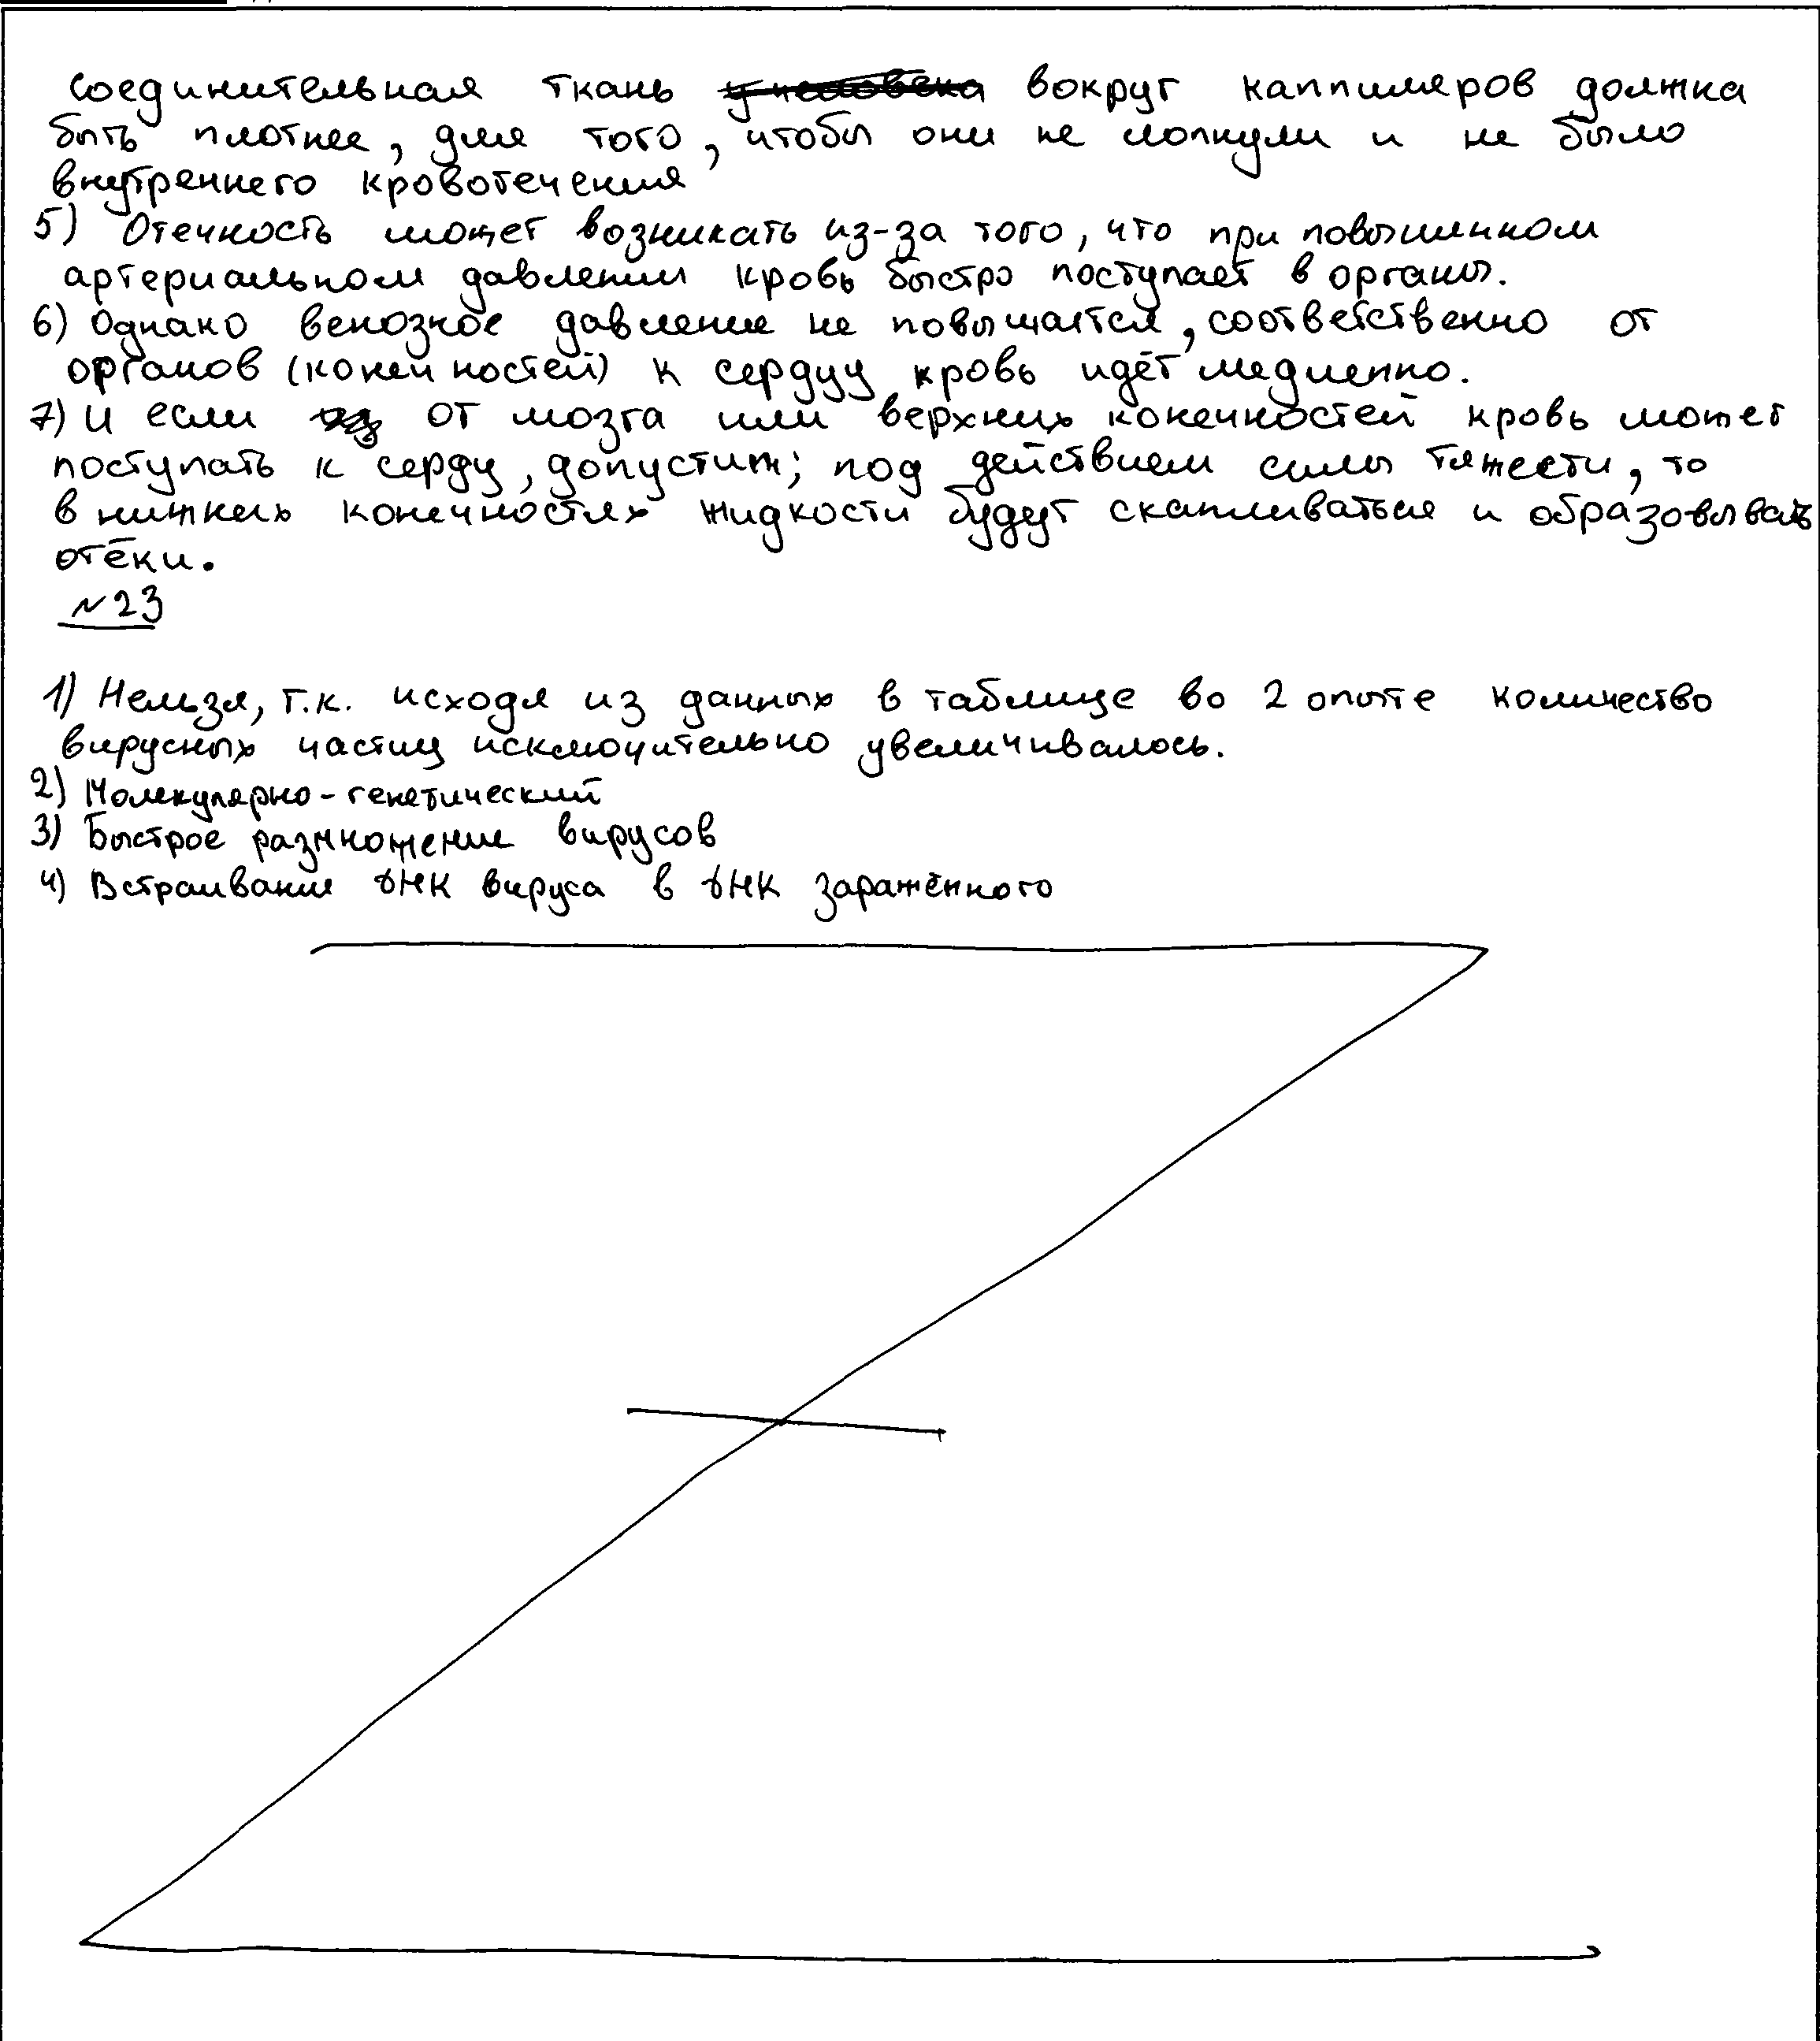 соединительная ткань у человека вокруг каппиляров должна
быть плотнее, для того, чтобы они не лопнули и не было
внутреннего кровотечения
5) Отечность может возникать из-за того, что при повышенном
артериальном давлении кровь быстро поступает в органы.
6) Однако венозное давление не повышается, соответственно от
органов (конечностей) к сердцу кровь идёт медленно.
7) И если от мозга или верхних конечностей кровь может
поступать к серду, допустим; под действием силы тяжести, то
в нижних конечностях жидкости будут скапливаться и образовывать
отёки.
№23
1) Нельзя, т.к. исходя из данных в таблице во 2 опыте количество
вирусных частиц исключительно увеличивалось.
2) Молекулярно-генетический
3) Быстрое размножение вирусов
4) Встраивание ДНК вируса в ДНК заражённого